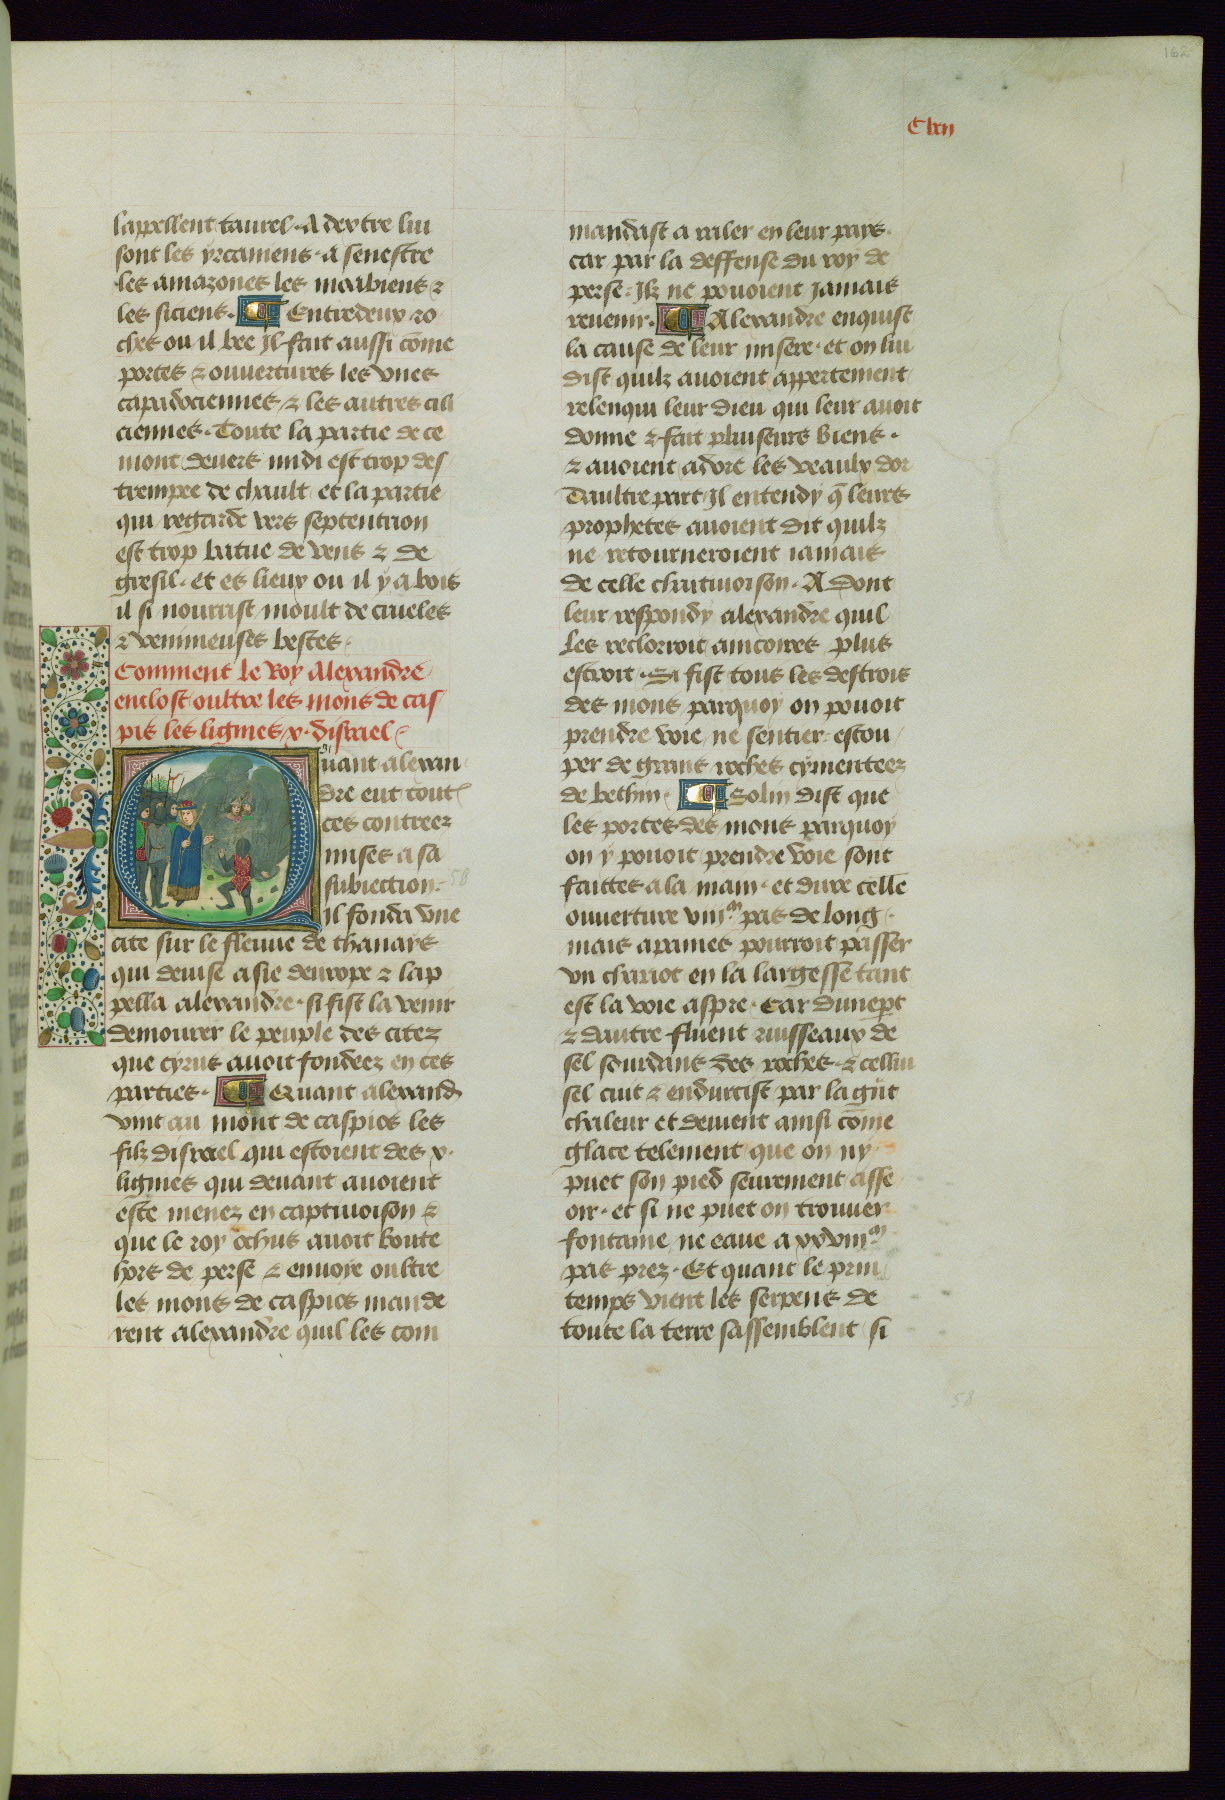 162
C lxii
lapellent taurel. A dextre lui
sont les yrcaniens. a senestre
les amazones les mabiens ⁊
les siciens. Entredeux ro
ches ou il bee Il fait aussi cōme
portes ⁊ ouvertures les unes
capadociennes ⁊ les autres cili
ciennes. Toute la partie de ce
mont devers midi est trop des
trempee de chault et la partie
qui regarde vers septentrion
est trop batue de vens ⁊ de
gresil. et es lieux ou il y a bois
il si nourrist moult de crueles
⁊ venimeuses bestes.
Comment le Roy Alexandre
enclost oultre les mons de cas
pis les lignies .x. disrael
Quant alexan
dre eut tout
ces contrees
mises a sa
subiection.
il fonda une
cite sur le fleuve de thanays
qui devise asie deurope ⁊ lap
pella alexandre. si fist la venir
demourer le peuple des citez
que cyrus avoit fondeez en ces
parties. Quant alexand
vint au mont de caspios les
filz disrael qui estoient des .x.
lignies qui devant avoient
este menez en captivoison ⁊
que le roy ochus avoit boute
hors de perse ⁊ envoye oultre
les mons de caspios mande
rent alexandre quil les com
mandast a raler en leur pays.
car par la deffense du roy de
perse. Ilz ne pouoient Jamais
revenir. Alexandre enquist
la cause de leur misere. et on lui
dist quilz avoient appertement
relenqui leur dieu qui leur avoit
donne ⁊ fait pluiseurs biens.
⁊ avoient adore les veaulx dor
Daultre part Il entendy q̄ leurs
prophetes avoient dit quilz
ne retourneroient iamais
de celle chaitivoison. A dont
leur respondy alexandre quil
les reclorroit aincoires plus
estroit. Si fist tous les destrois
des mons parquoy on pouoit
prendre voie ne sentier estou
per de grans roches cymenteez
de bethin. Solin dist que
les portes des mons parquoy
on y pouoit prendre voie sont
faittes a la main. et dure celle
ouverture viii.ᵐ pas de long.
mais a paines pourroit passer
un chariot en la largesse tant
est la voie aspre. Car dune pt
⁊ dautre fluent ruisseaux de
sel sourdans des roches. ⁊ cellui
sel cuit ⁊ endurcist par la gñt
chaleur et devient ainsi cōme
glace telement que on ny
puet son pied seurement asse
oir. et si ne puet on trouver
fontaine ne eaue a xxviii.ᵐ
pas prez. Et quant le prin
temps vient les serpens de
toute la terre sassemblent si
58